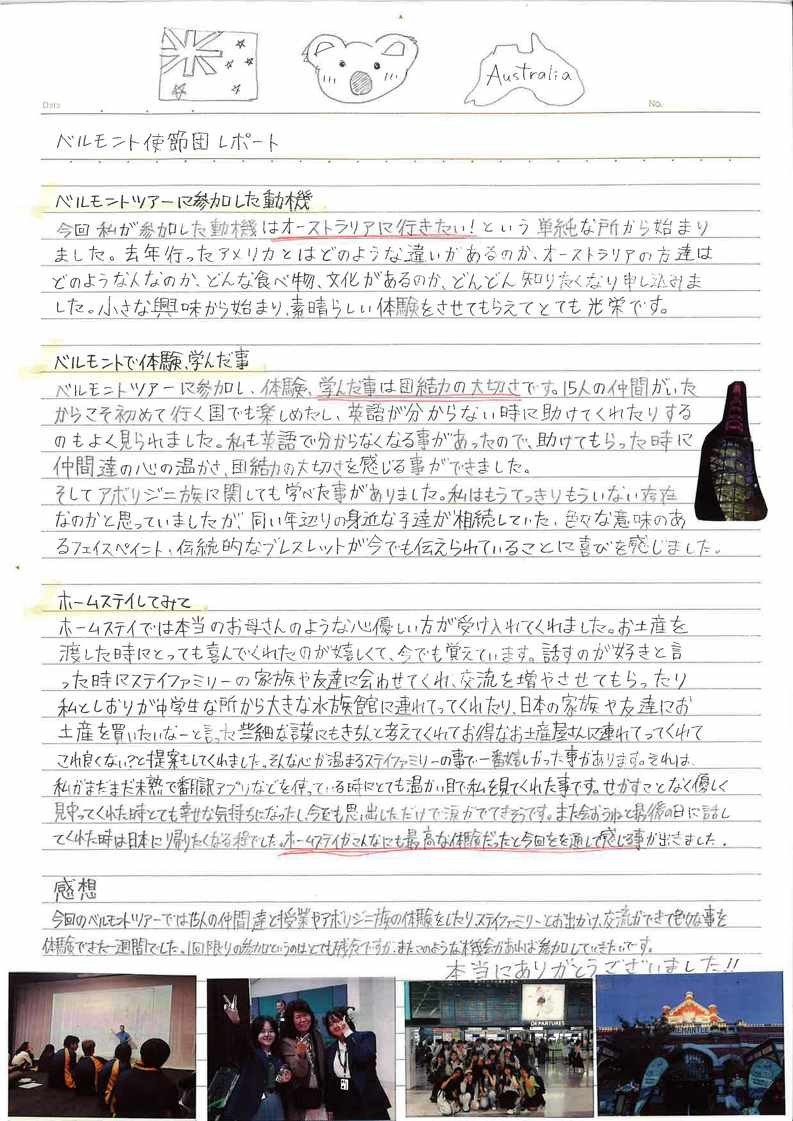 Australia
Date
No.
ベルモント使節団レポート
ベルモントツアーに参加した動機
今回私が参加した動機はオーストラリアに行きたい!という単純な所から始まり
ました。去年行ったアメリカとはどのような違いがあるのか、オーストラリアの方達は
どのような人なのか、どんな食べ物、文化があるのか、どんどん知りたくなり申し込みま
した。小さな興味から始まり、素晴らしい体験をさせてもらえてとても光栄です。
ベルモントで体験、学んだ事
ベルモントツアーに参加し、体験、学んだ事は団結力の大切さです。15人の仲間がいた
からこそ初めて行く国でも楽しめたし、英語が分からない時に助けてくれたりする
のもよく見られました。私も英語で分からなくなる事があったので、助けてもらった時に
仲間達の心の温かさ、団結力の大切さを感じる事ができました。
そしてアボリジニ族に関しても学べた事がありました。私はもうてっきりもういない存在
なのかと思っていましたが、同い年辺りの身近な子達が相続していた、色々な意味のあ
るフェイスペイント、伝統的なブレスレットが今でも伝えられていることに喜びを感じました。
ホームステイしてみて
ホームステイでは本当のお母さんのような心優しい方が受け入れてくれました。お土産を
渡した時にとっても喜んでくれたのが嬉しくて、今でも覚えています。話すのが好きと言
った時にステイファミリーの家族や友達に会わせてくれ、交流を増やさせてもらったり
私としおりが中学生な所から大きな水族館に連れてってくれたり、日本の家族や友達にお
土産を買いたいなーと言った些細な言葉にもきちんと考えてくれてお得なお土産屋さんに連れてってくれて
これ良くない?と提案もしてくれました。そんな心が温まるステイファミリーの事で一番嬉しかった事があります。それは、
私がまだまだ未熟で翻訳アプリなどを使っている時にとても温かい目で私を見てくれた事です。せかすことなく優しく
見守ってくれた時とても幸せな気持ちになったし、今でも思い出しただけで涙がでてきそうです。また会おうねと最後の日に話し
てくれた時は日本に帰りたくなる程でした。ホームステイがこんなにも最高な体験だったと今回を通して感じる事が出きました。
感想
今回のベルモントツアーでは15人の仲間達と授業やアボリジニ族の体験をしたり、ステイファミリーとお出かけ、交流ができて色々な事を
体験できた一週間でした。1回限りの参加というのはとても残念ですが、またこのような機会があれば参加していきたいです。
本当にありがとうございました!!
DEPARTURES
FREMANTLE